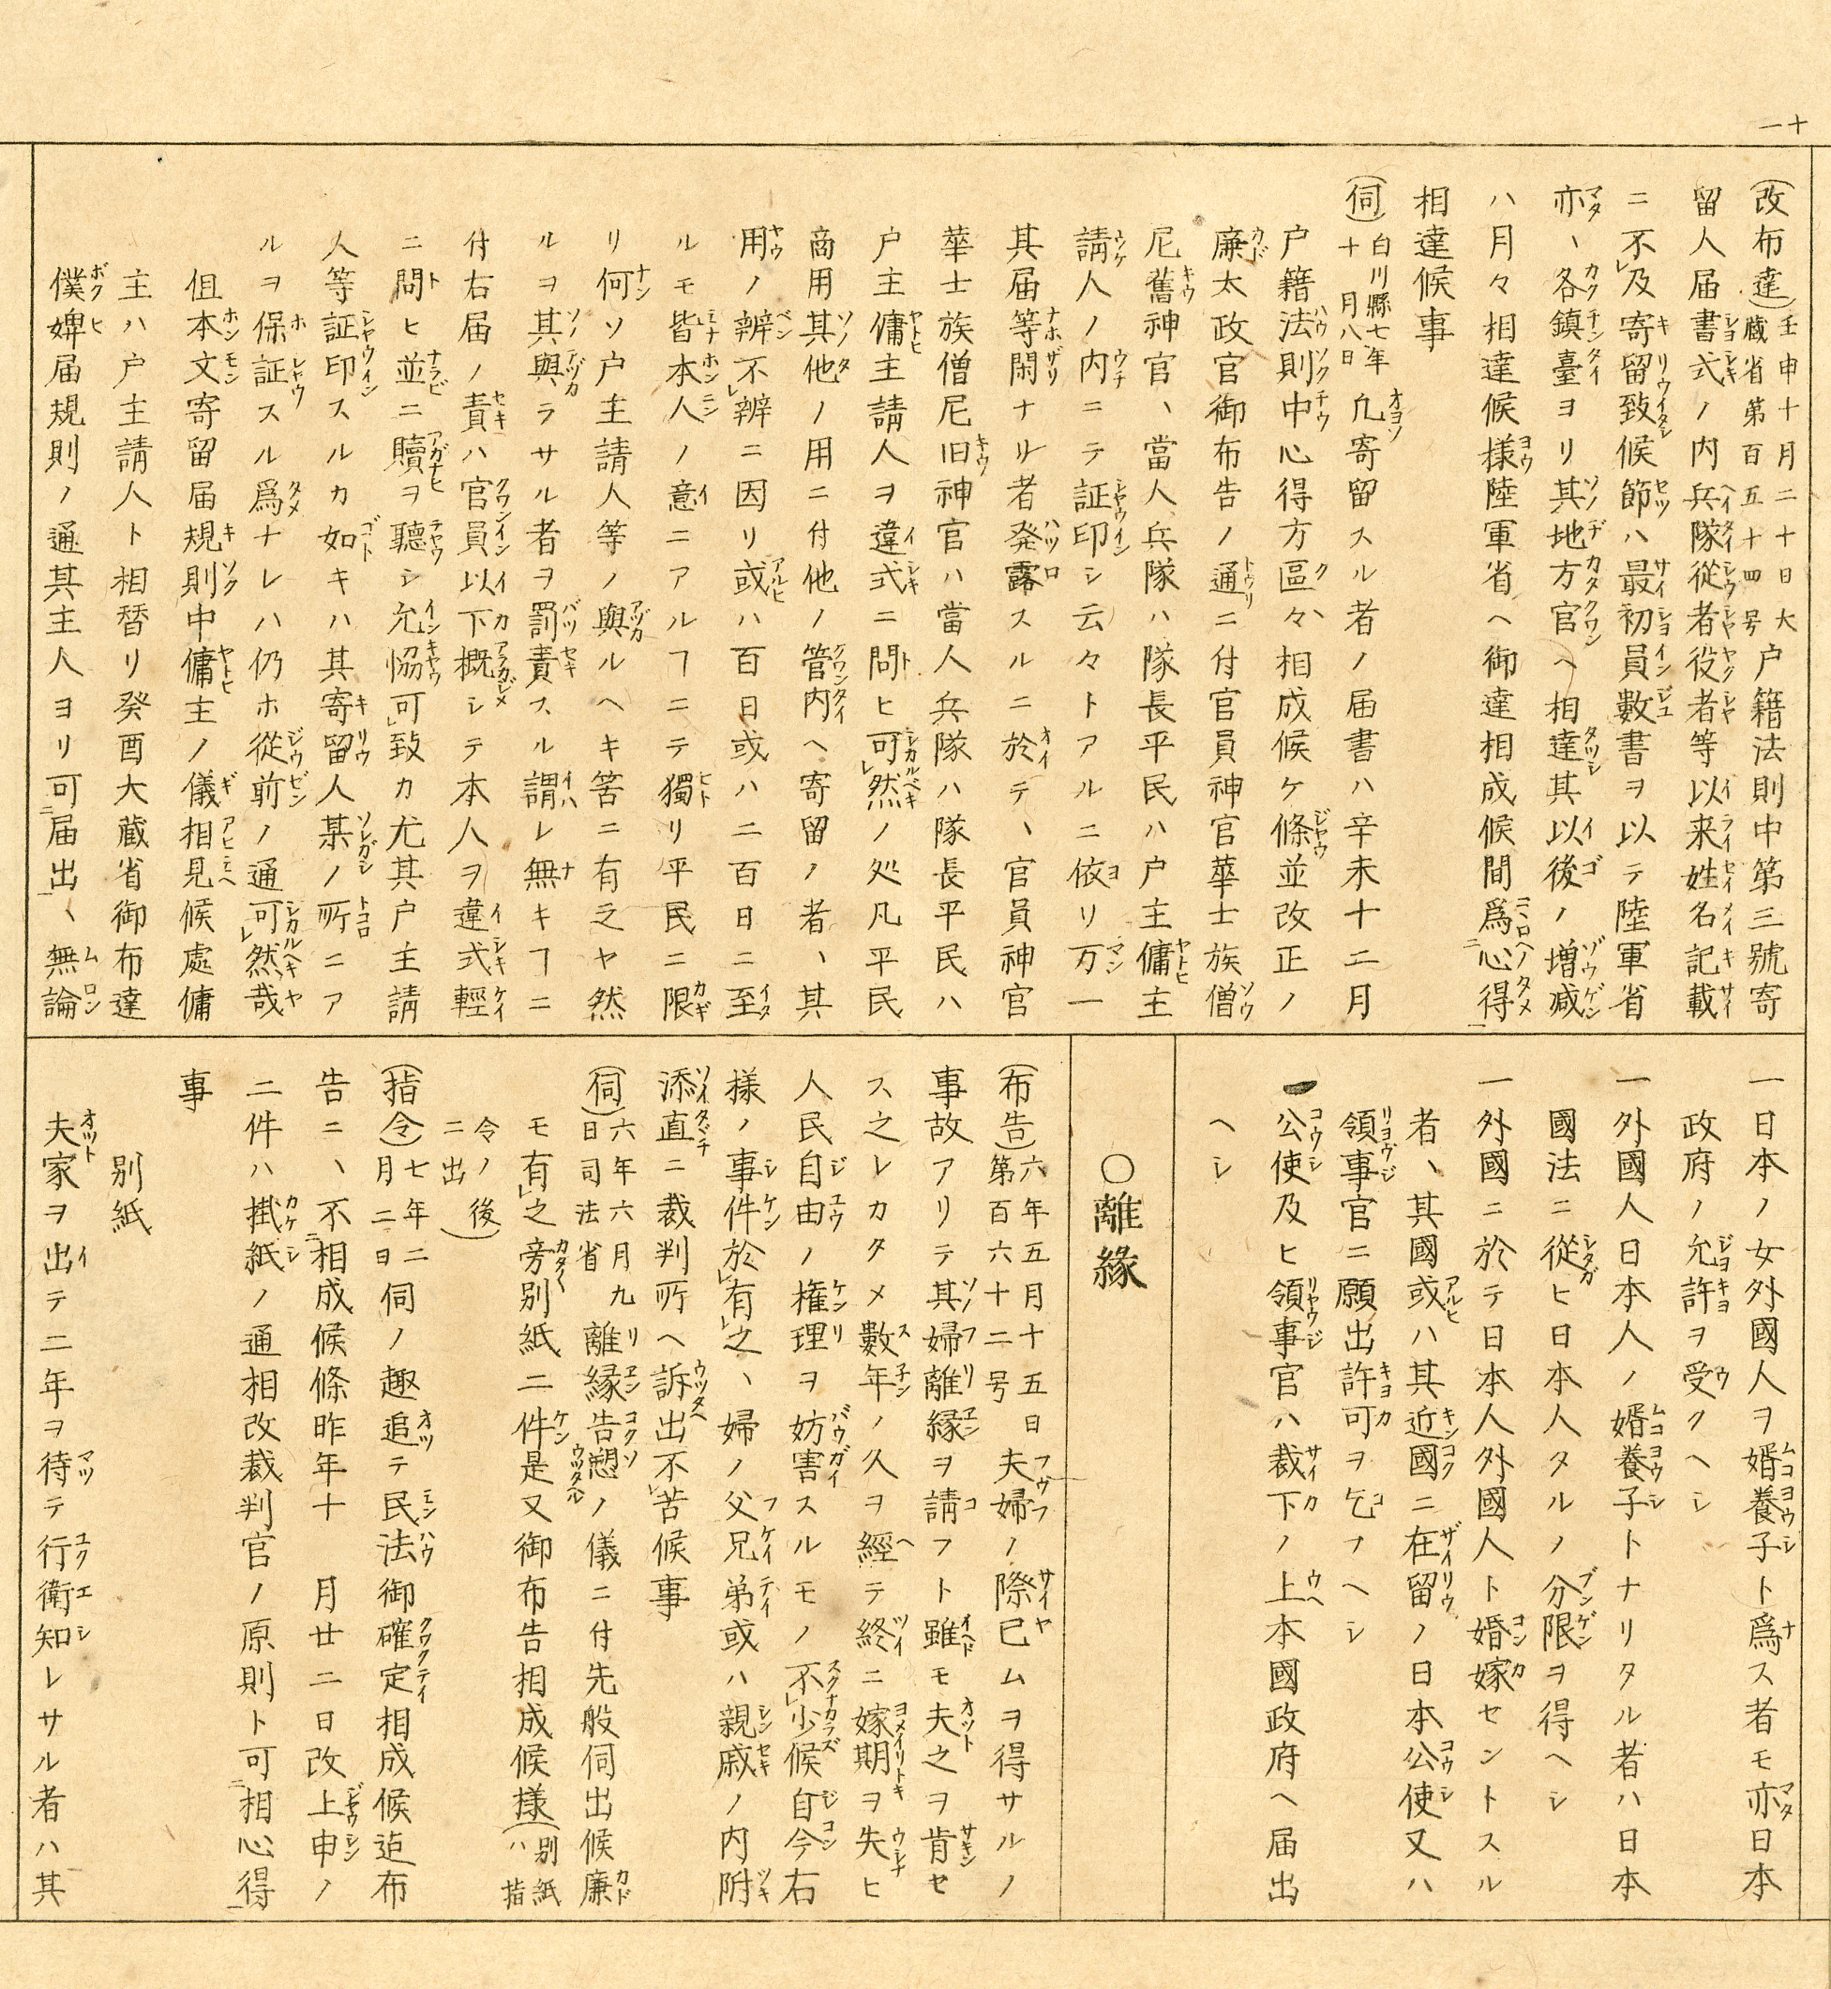 十一
(改布達)壬申十月二十日大蔵省第百五十四号戸籍法則中第三號寄
留人届書式ノ内兵隊從者役者等以来姓名記載
ニ不レ及寄留致候節ハ最初員數書ヲ以テ陸軍省
亦、各鎮臺ヨリ其地方官ヘ相達其以後ノ増减
ハ月々相達候様陸軍省ヘ御達相成候間爲二心得一
相達候事
(伺)白川縣七年十月八日凢寄留スル者ノ届書ハ辛未十二月
戸籍法則中心得方區々相成候ケ條並改正ノ
廉太政官御布告ノ通ニ付官員神官華士族僧
尼舊神官、當人兵隊ハ隊長平民ハ戸主傭主
請人ノ内ニテ証印シ云々トアルニ依リ万一
其届等閑ナル者発露スルニ於テ、官員神官
華士族僧尼旧神官ハ當人兵隊ハ隊長平民ハ
戸主傭主請人ヲ違式ニ問ヒ可レ然ノ処凡平民
商用其他ノ用ニ付他ノ管内ヘ寄留ノ者、其
用ノ辨不レ辨ニ因リ或ハ百日或ハ二百日ニ至
ルモ皆本人ノ意ニアルヿニテ獨リ平民ニ限
リ何ソ戸主請人等ノ與ルヘキ筈ニ有之ヤ然
ルヲ其與ラサル者ヲ罰責スル謂レ無キヿニ
付右届ノ責ハ官員以下概シテ本人ヲ違式輕
ニ問ヒ並ニ贖ヲ聽シ允恊可レ致カ尤其戸主請
人等証印スルカ如キハ其寄留人某ノ所ニア
ルヲ保証スル爲ナレハ仍ホ從前ノ通可レ然哉
伹本文寄留届規則中傭主ノ儀相見候處傭
主ハ戸主請人ト相替リ癸酉大蔵省御布達
僕婢届規則ノ通其主人ヨリ可二届出一、無論
一日本ノ女外國人ヲ婿養子ト爲ス者モ亦日本
政府ノ允許ヲ受クヘシ
一外國人日本人ノ婿養子トナリタル者ハ日本
國法ニ從ヒ日本人タルノ分限ヲ得ヘシ
一外國ニ於テ日本人外國人ト婚嫁セントスル
者、其國或ハ其近國ニ在留ノ日本公使又ハ
領事官ニ願出許可ヲ乞フヘシ
一公使及ヒ領事官ハ裁下ノ上本國政府ヘ届出
ヘシ
○離縁
(布告)六年五月十五日第百六十二号夫婦ノ際已ムヲ得サルノ
事故アリテ其婦離縁ヲ請フト雖モ夫之ヲ肯セ
ス之レカタメ數年ノ久ヲ經テ終ニ嫁期ヲ失ヒ
人民自由ノ権理ヲ妨害スルモノ不レ少候自今右
様ノ事件於レ有レ之、婦ノ父兄弟或ハ親戚ノ内附
添直ニ裁判所ヘ訴出不レ苦候事
(伺)六年六月九日司法省離縁告愬ノ儀ニ付先般伺出候廉
モ有レ之旁別紙二件是又御布告相成候様(別紙ハ指
令ノ後ニ出)
(指令)七年二月二日伺ノ趣追テ民法御確定相成候迠布
告ニ、不二相成候條昨年十月廿二日改上申ノ
二件ハ掛紙ノ通相改裁判官ノ原則ト可二相心得一
事
別紙
夫家ヲ出テ二年ヲ待テ行衛知レサル者ハ其